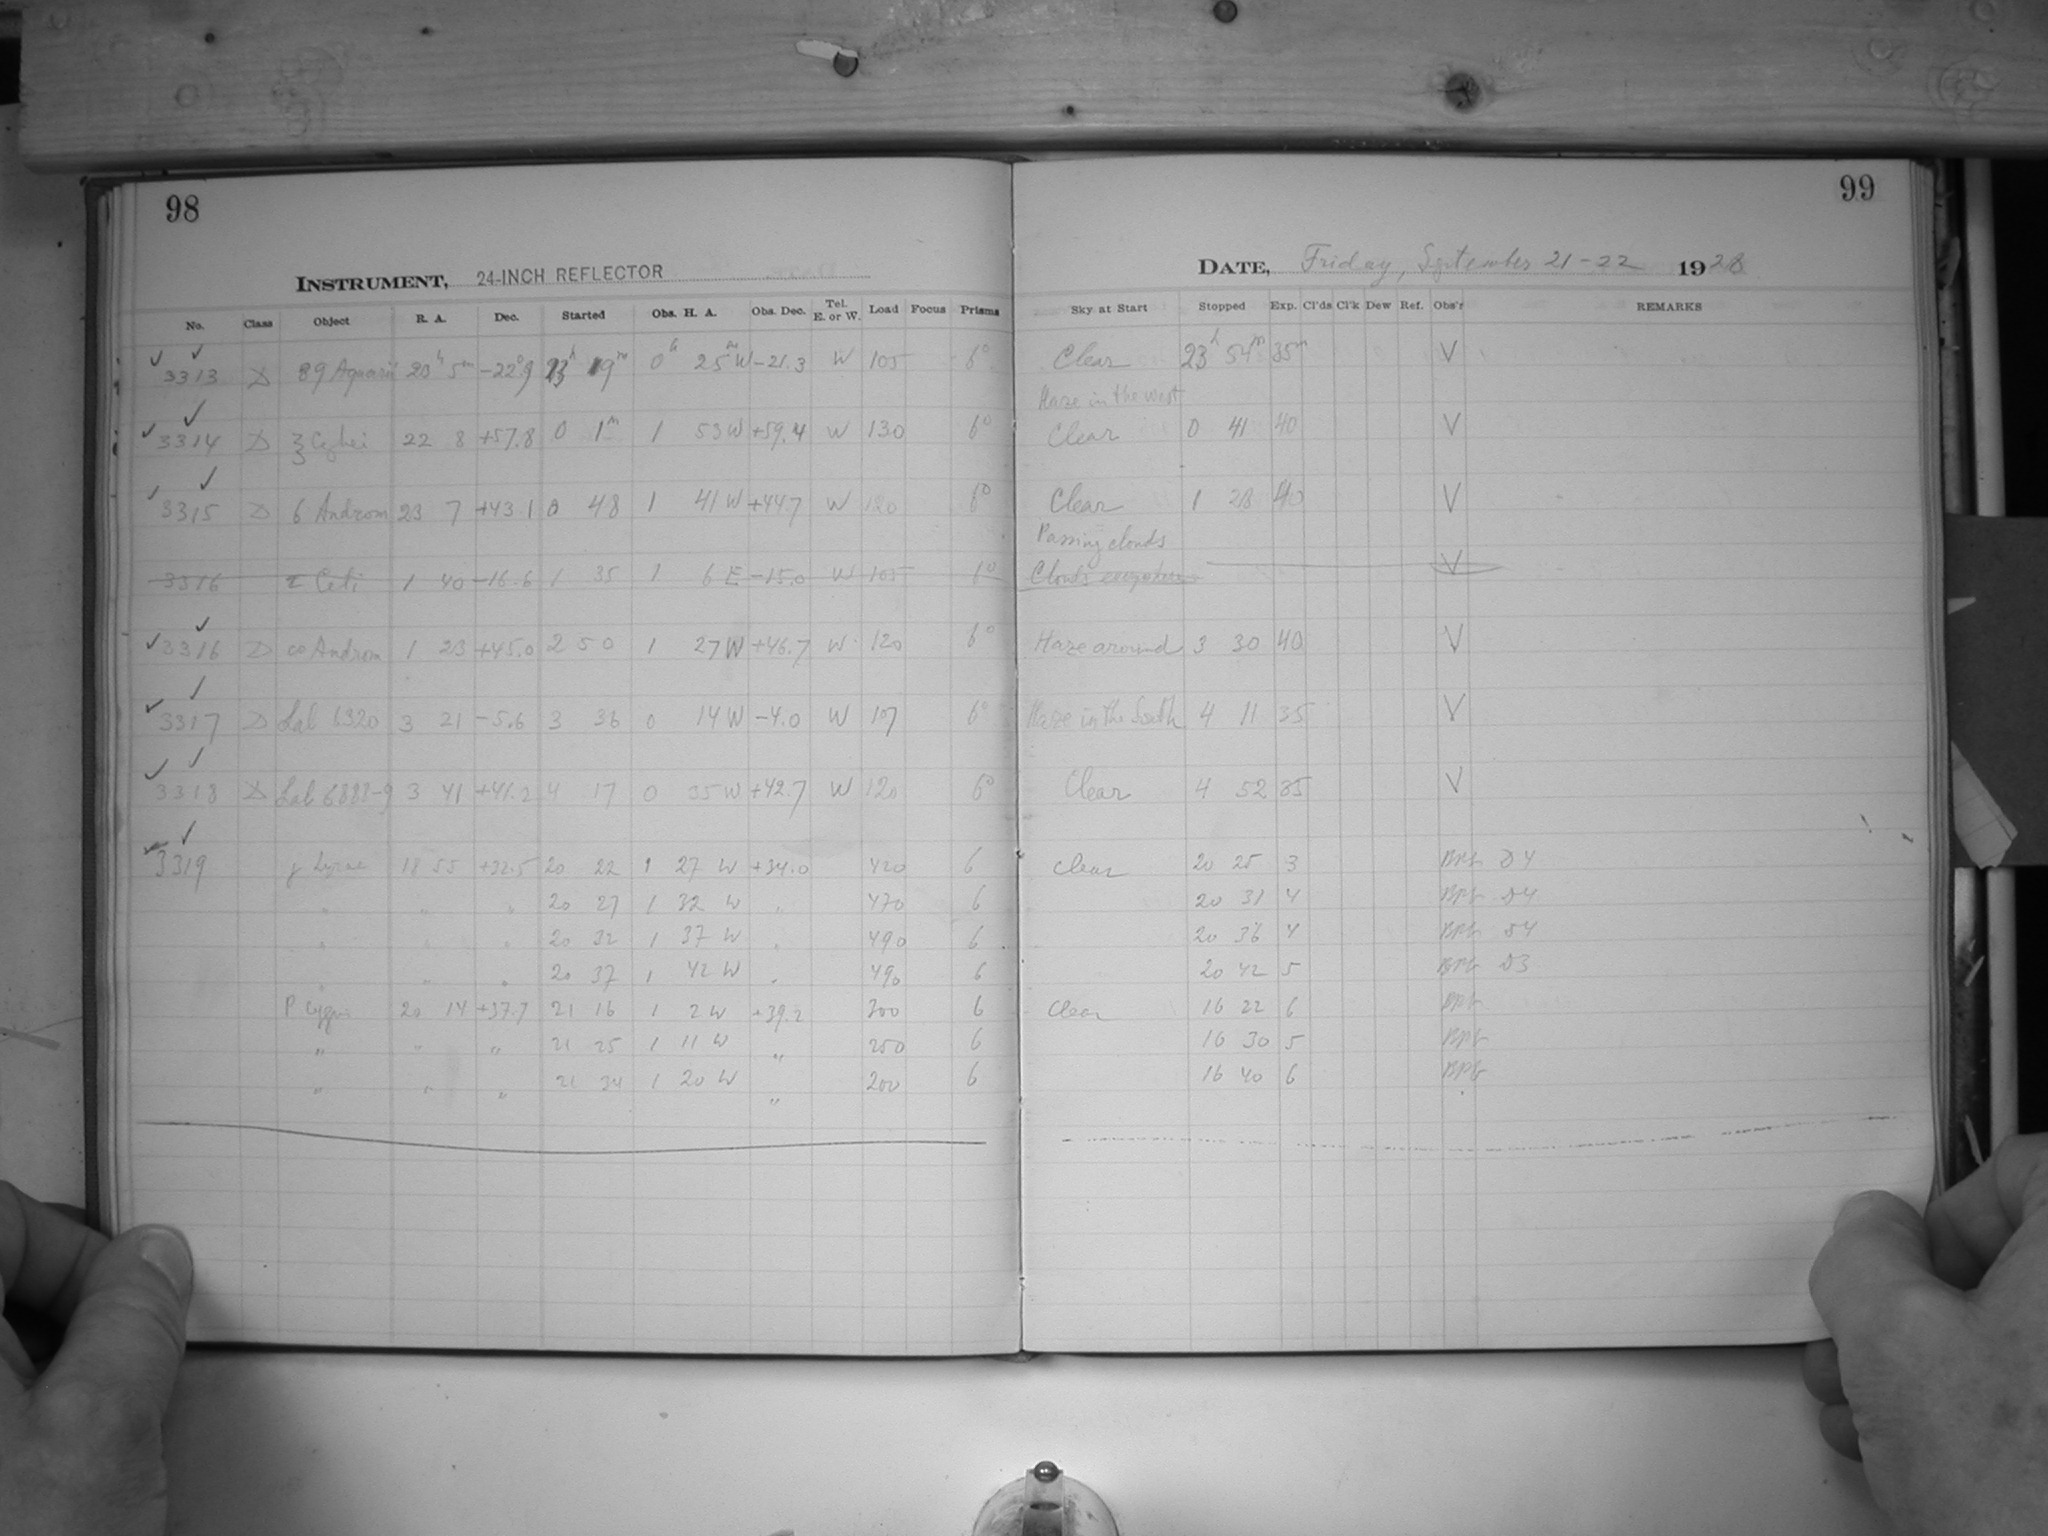 98
INSTRUMENT, 24-INCH REFLECTOR
No. Class Object R. A. Dec. Started Obs. H. A. Obs. Dec. Tel. E. or W. Load Focus Prisms
3313 D 89 Aquarii 23h 5m -22°9 23h 19m 0h 25m W -21.3 W 105 6°
3314 D ξ Cephei 22 8 +57.8 0 1m 1 53 W +59.4 W 130 6°
3315 D 6 Androm 23 7 +43.1 0 48 1 41 W +44.7 W 120 6°
3316 τ Ceti 1 40 -16.6 1 35 1 6 E -15.0 W 105 6°
3316 D ω Androm 1 23 +45.0 2 50 1 27 W +46.7 W 120 6°
3317 D Lal 6320 3 21 -5.6 3 36 0 14 W -4.0 W 107 6°
3318 D Lal 6888-9 3 41 +41.2 4 17 0 35 W +42.7 W 120 6°
3319 γ Lyrae 18 55 +32.5 20 22 1 27 W +34.0 420 6
" " " 20 27 1 32 W " 470 6
" " " 20 32 1 37 W " 490 6
" " " 20 37 1 42 W " 490 6
P Cygni 20 14 +37.7 21 16 1 2 W +39.2 300 6
" " " 21 25 1 11 W " 250 6
" " " 21 34 1 20 W " 200 6
99
DATE, Friday, September 21-22 1928
Sky at Start Stopped Exp. Cl'ds Cl'k Dew Ref. Obs'r REMARKS
Clear 23h 54m 35m V
Haze in the west
Clear 0 41 40 V
Clear 1 28 40 V
Passing clouds
Clouds everywhere V
Haze around 3 30 40 V
Haze in the South 4 11 35 V
Clear 4 52 35 V
Clear 20 25 3 D4
20 31 4 D4
20 36 4 D4
20 42 5 D3
Clear 16 22 6
16 30 5
16 40 6